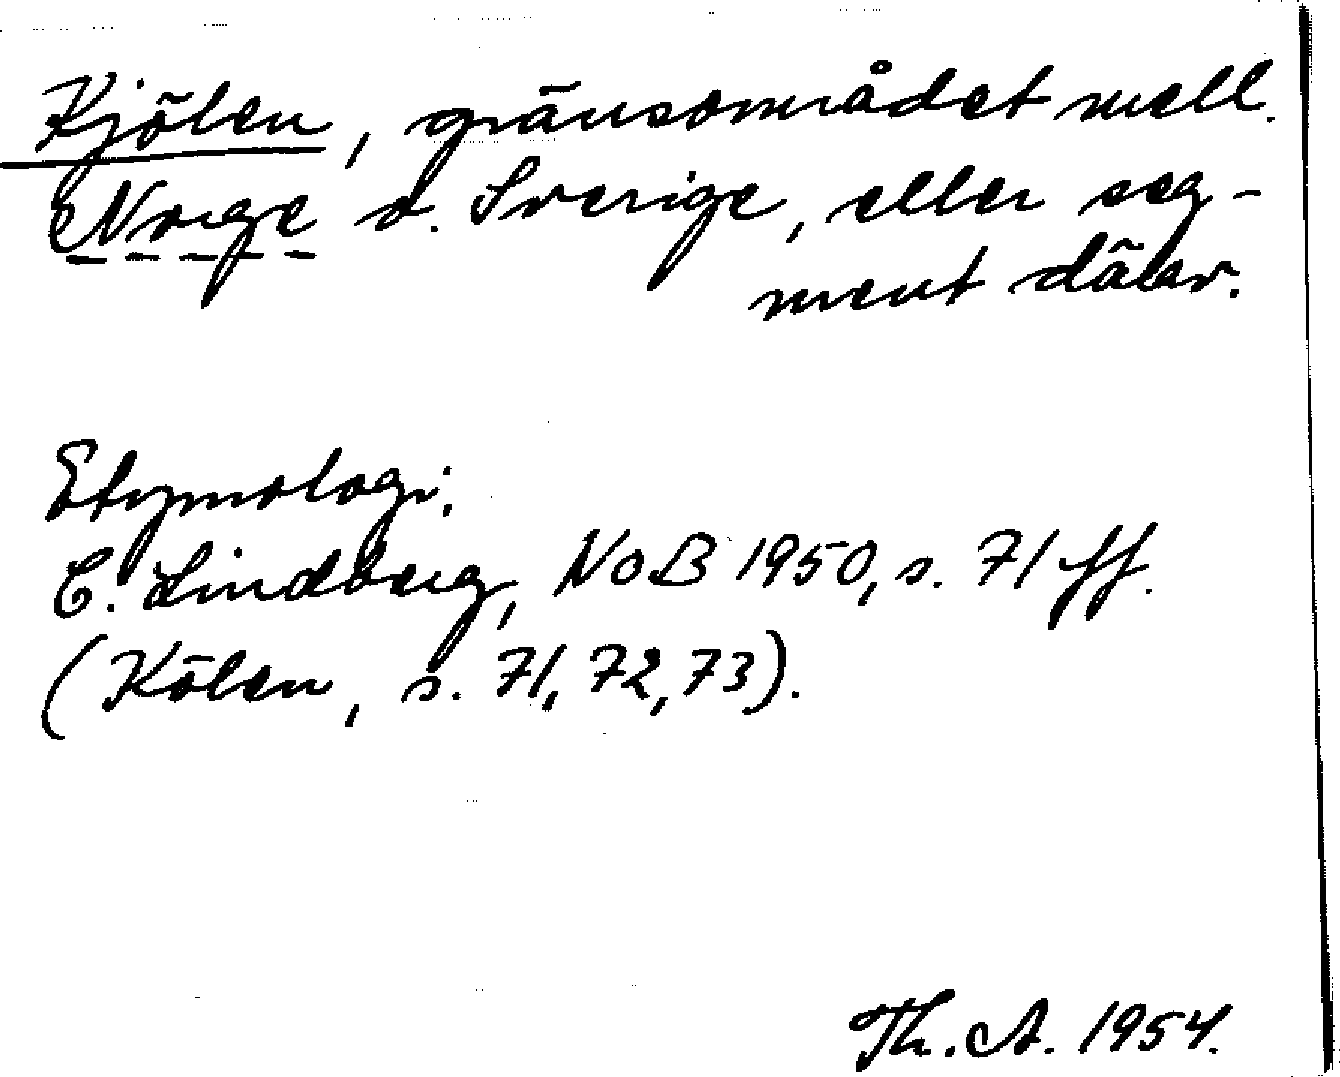 Kjölen, gränsområdet mell.
Norge o. Sverige, eller seg-
ment därav.
Etymologi:
C. Lindberg, NoB 1950, s. 71 ff.
(Kölen, s. 71, 72, 73).
Th. A. 1954.